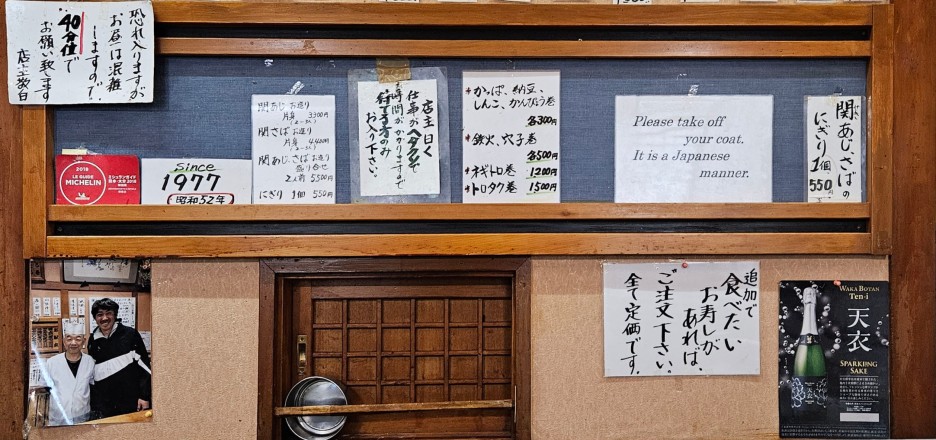 恐れ入りますが
お昼は混雑
しますので、
40分位で
お願い致します
店主敬白
2018
LE GUIDE
MICHELIN
ミシュランガイド
熊本・大分 2018
特別版
Since
1977
昭和52年
関あじ お造り
片身 3,300円
(2〜3人)
関さば お造り
片身 4,400円
(2〜3人)
関あじ、さば お造り
盛り合せ
2人前 5500円
にぎり 1個 550円
店主曰く
仕事がヘタクソで
時間がかかりますので
待てる方のみ
お入り下さい。
*かっぱ、納豆、
しんこ、かんぴょう巻
各300円
*鉄火、穴子巻
各500円
*ネギトロ巻 1200円
*トロタク巻 1500円
Please take off
your coat.
It is a Japanese
manner.
関あじ、さばの
にぎり1個
550円
追加で
食べたい
お寿しが
あれば、
ご注文下さい。
全て定価です。
WAKA BOTAN
Ten-i
天衣
SPARKLING
SAKE